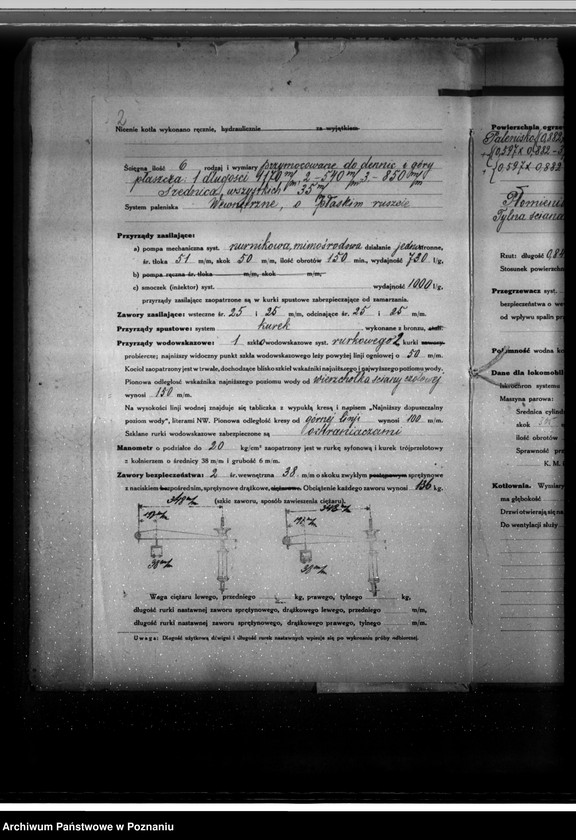 2
Nicenie kotła wykonano ręcznie, hydraulicznie za wyjątkiem
Ścięgna ilość 6 rodzaj i wymiary przymocowane do dennic u góry
płaszcza: 1 długości 4170 m/m, 2 – 540 m/m 3 – 850 m/m
Średnica wszystkich 35 m/m
System paleniska Wewnętrzne, o płaskim ruszcie
Przyrządy zasilające:
a) pompa mechaniczna syst. nurnikowa, mimośrodowa działanie jednostronne,
śr. tłoka 51 m/m, skok 50 m/m, ilość obrotów 150 min., wydajność 730 l/g,
b) pompa ręczna śr. tłoka m/m, skok m/m,
c) smoczek (inżektor) syst. wydajność 1000 l/g,
przyrządy zasilające zaopatrzone są w kurki spustowe zabezpieczające od zamarzania.
Zawory zasilające: wsteczne śr. 25 i 25 m/m, odcinające śr. 25 i 25 m/m.
Przyrządy spustowe: system kurek wykonane z bronzu,
Przyrządy wodowskazowe: 1 szkło wodowskazowe syst. rurkowego 2 kurki
probiercze; najniższy widoczny punkt szkła wodowskazowego leży powyżej linji ogniowej o 50 m/m.
Kocioł zaopatrzony jest w trwałe, dochodzące blisko szkieł wskaźniki najniższego i najwyższego poziomu wody.
Pionowa odległość wskaźnika najniższego poziomu wody od wierzchołka ściany czołowej
wynosi 150 m/m.
Na wysokości linji wodnej znajduje się tabliczka z wypukłą kresą i napisem „Najniższy dopuszczalny
poziom wody", literami NW. Pionowa odległość kresy od górnej linji wynosi 100 m/m.
Szklane rurki wodowskazowe zabezpieczone są ochraniaczami
Manometr o podziałce do 20 kg/cm² zaopatrzony jest w rurkę syfonową i kurek trójprzelotowy
z kołnierzem o średnicy 38 m/m i grubość 6 m/m.
Zawory bezpieczeństwa: 2 śr. wewnętrzna 38 m/m o skoku zwykłym postępowym sprężynowe
z naciskiem bezpośrednim, sprężynowe drążkowe, ciężarowe. Obciążenie każdego zaworu wynosi 136 kg.
(szkic zaworu, sposób zawieszenia ciężaru).
348 m/m 348 m/m
Waga ciężaru lewego, przedniego kg, prawego, tylnego kg,
długość rurki nastawnej zaworu sprężynowego, drążkowego lewego, przedniego m/m,
długość rurki nastawnej zaworu sprężynowego, drążkowego prawego, tylnego m/m.
Uwaga: Długość użytkową dźwigni i długość rurek nastawnych wpisuje się po wykonaniu próby odbiorczej.
Powierzchnia ogrzew
Palenisko (0,882
(0,597 x 0,882
(0,597 x 0,882
Płomieni
Tylna ściana
Rzut: długość 0,84
Stosunek powierzchn
Przegrzewacz syst.
bezpieczeństwa o we
od wpływu spalin pr
Pojemność wodna ko
Dane dla lokomobili
Iskrochron systemu
Maszyna parowa:
Średnica cylind
skok
ilość obrotów
Sprawność pr
K. M.
Kotłownia. Wymiary
ma głębokość
Drzwi otwierają się na
Do wentylacji służy
Archiwum Państwowe w Poznaniu